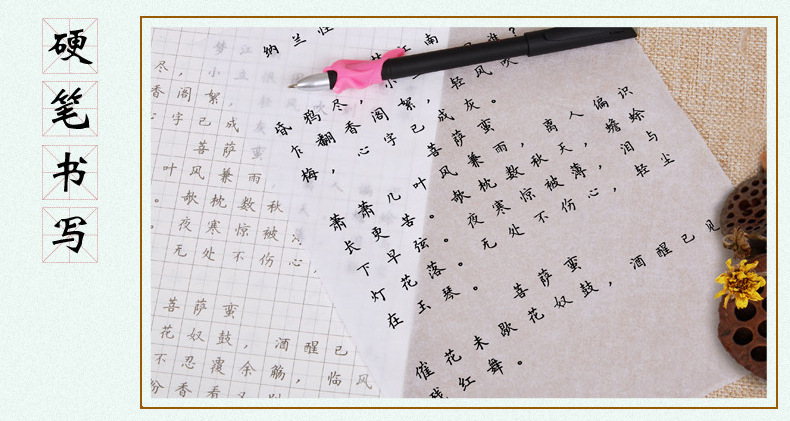 硬笔书写
纳兰性
江南
昏鸦尽，小 谁？
乍翻香阁絮，轻风吹
梅，心字已成灰。
菩萨蛮
萧萧几叶风兼雨，离人偏识
长更苦。欹枕数秋天，蟾蜍
下早弦。夜寒惊被薄，泪与
灯花落。无处不伤心，轻尘
在玉琴。 菩萨蛮
催花未歇花奴鼓，酒醒已见
残红舞。
梦江
尽，小立恨
香阁絮，轻风吹
心字已成灰
菩萨蛮
叶风兼雨，
。欹枕数秋
。夜寒惊被
无处不伤心，
菩萨蛮
花奴鼓，酒醒已
不忍覆余觞，临风
香看又别